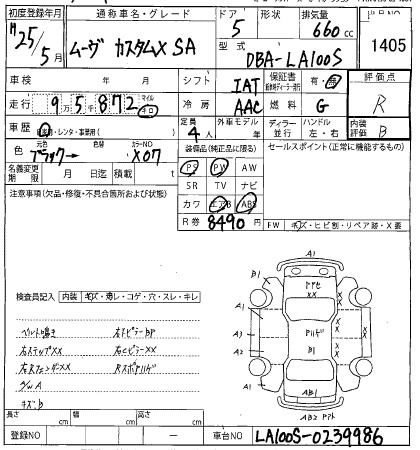 初度登録年月 通称車名・グレード ドア 形状 排気量
H 25年 5月 ムーヴ カスタムX SA 5 660cc 1405
型式 DBA-LA100S
車検 年 月 シフト IAT 保証書 有・無 評価点
走行 9万5千872 マイル キロ 冷房 AAC 燃料 G R
車歴 自家用・レンタ・事業用( ) 定員 4人 外車モデル 年 ディーラー 並行 ハンドル 左・右 内装評価 B
色 元色 ブラック → 色替 カラーNO X07 装備品(純正品に限る) セールスポイント(正常に機能するもの)
名義変更期限 月 日迄 積載 t PS PW AW
注意事項(欠品・修復・不具合箇所および状態) SR TV ナビ
カワ エアB ABS
R券 8490円
FW キズ・ヒビ割・リペア跡・X要
A1
B1 A1
検査員記入 内装 キズ・汚レ・コゲ・穴・スレ・キレ
A1
ベルト鳴き 右FピラーBP A3
右ステップXX 右CピラーXX A2 B1
右RフェンダーXX A1
グリルA
キズB AB1
AB2
長さ cm 幅 cm 高さ cm
登録NO 車台NO LA100S-0239986